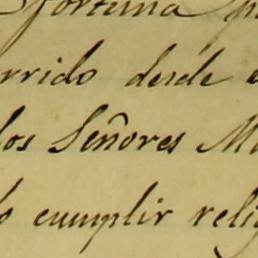 fortuna p
rrido desde e
los Señores M
o cumplir relig